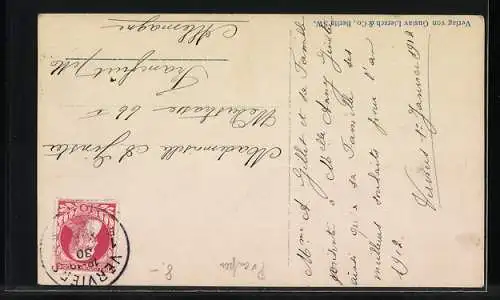 Verlag von Gustav Liersch & Co., Berlin SW.
Verviers 1er Janvier 1912
Mme A Gillet et sa famille
présentent à Melle Anny
ainsi qu'à sa famille ses
meilleurs souhaits pour l'an
1912.
Mademoiselle A.
66 I
Francfurt s/M
Allemagne
VERVIERS
30
8.-